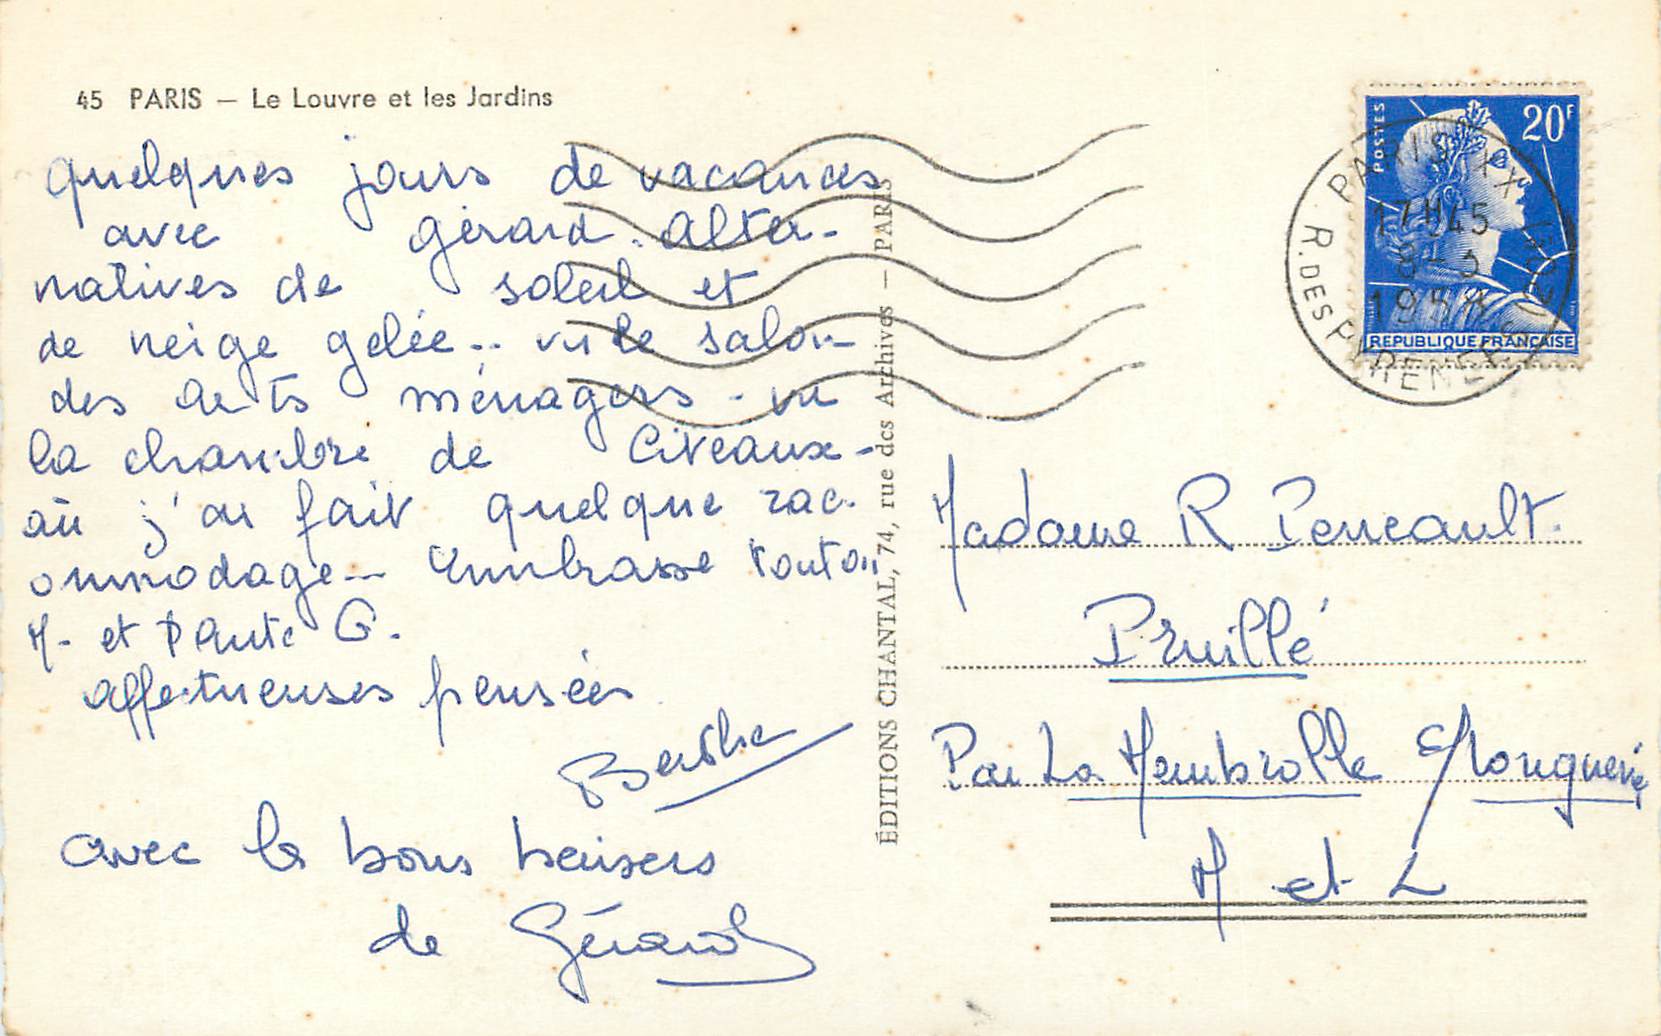 45 PARIS — Le Louvre et les Jardins
quelques jours de vacances
avec gérard. alter-
natives de soleil et
de neige gelée.. vu le salon
des arts ménagers - vu
la chambre de Civeaux-
où j'ai fait quelque rac.
ommodage... Embrasse tonton
M. et tante G.
affectueuses pensées
Berthe
avec les bons baisers
de Gérard
ÉDITIONS CHANTAL, 74, rue des Archives — PARIS
POSTES
20F
REPUBLIQUE FRANÇAISE
PARIS XX
17H45
8-3
1958
R. DES PYRENEES
Madame R Perreault.
Pruillé
Par La Membrolle s/Longuenée
M et L